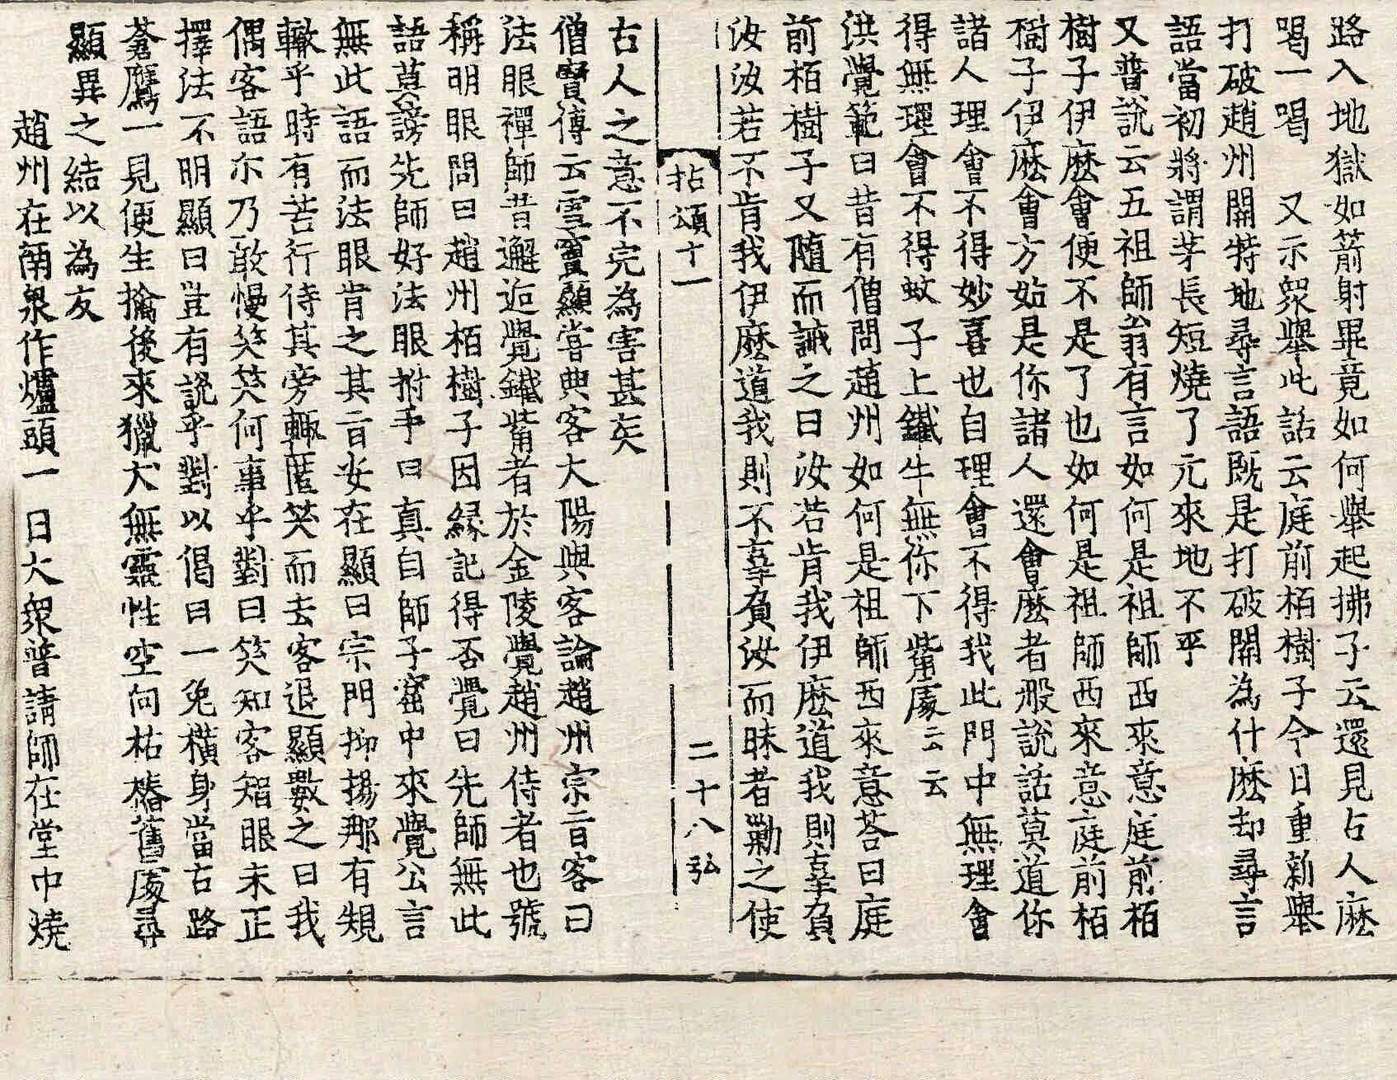 路入地獄如箭射畢竟如何舉起拂子云還見古人麽
喝一喝　又示衆舉此話云庭前栢樹子今日重新舉
打破趙州關特地尋言語旣是打破關為什麽却尋言
語當初將謂茅長短燒了元來地不平
又普說云五祖師翁有言如何是祖師西來意庭前栢
樹子伊麽會便不是了也如何是祖師西來意庭前栢
樹子伊麽會方始是你諸人還會麽者般說話莫道你
諸人理會不得妙喜也自理會不得我此門中無理會
得無理會不得蚊子上鐵牛無你下觜處云云
洪覺範曰昔有僧問趙州如何是祖師西來意荅曰庭
前栢樹子又隨而誡之曰汝若肯我伊麽道我則辜負
汝汝若不肯我伊麽道我則不辜負汝而昧者勦之使
拈頌十一　二十八弘
古人之意不完為害甚矣
僧寶傳云雪竇顯嘗典客大陽與客論趙州宗旨客曰
法眼禪師昔邂逅覺鐵觜者於金陵覺趙州侍者也號
稱明眼問曰趙州栢樹子因緣記得否覺曰先師無此
語莫謗先師好法眼拊手曰真自師子窟中來覺公言
無此語而法眼肯之其旨安在顯曰宗門抑揚那有䂓
轍乎時有苦行侍其旁輙匿笑而去客退顯數之曰我
偶客語尓乃敢慢笑笑何事乎對曰笑知客智眼未正
擇法不明顯曰豈有說乎對以偈曰一兔橫身當古路
蒼鷹一見便生擒後來獵犬無靈性空向枯樁舊處尋
顯異之結以為友
趙州在南泉作爐頭一日大衆普請師在堂中燒